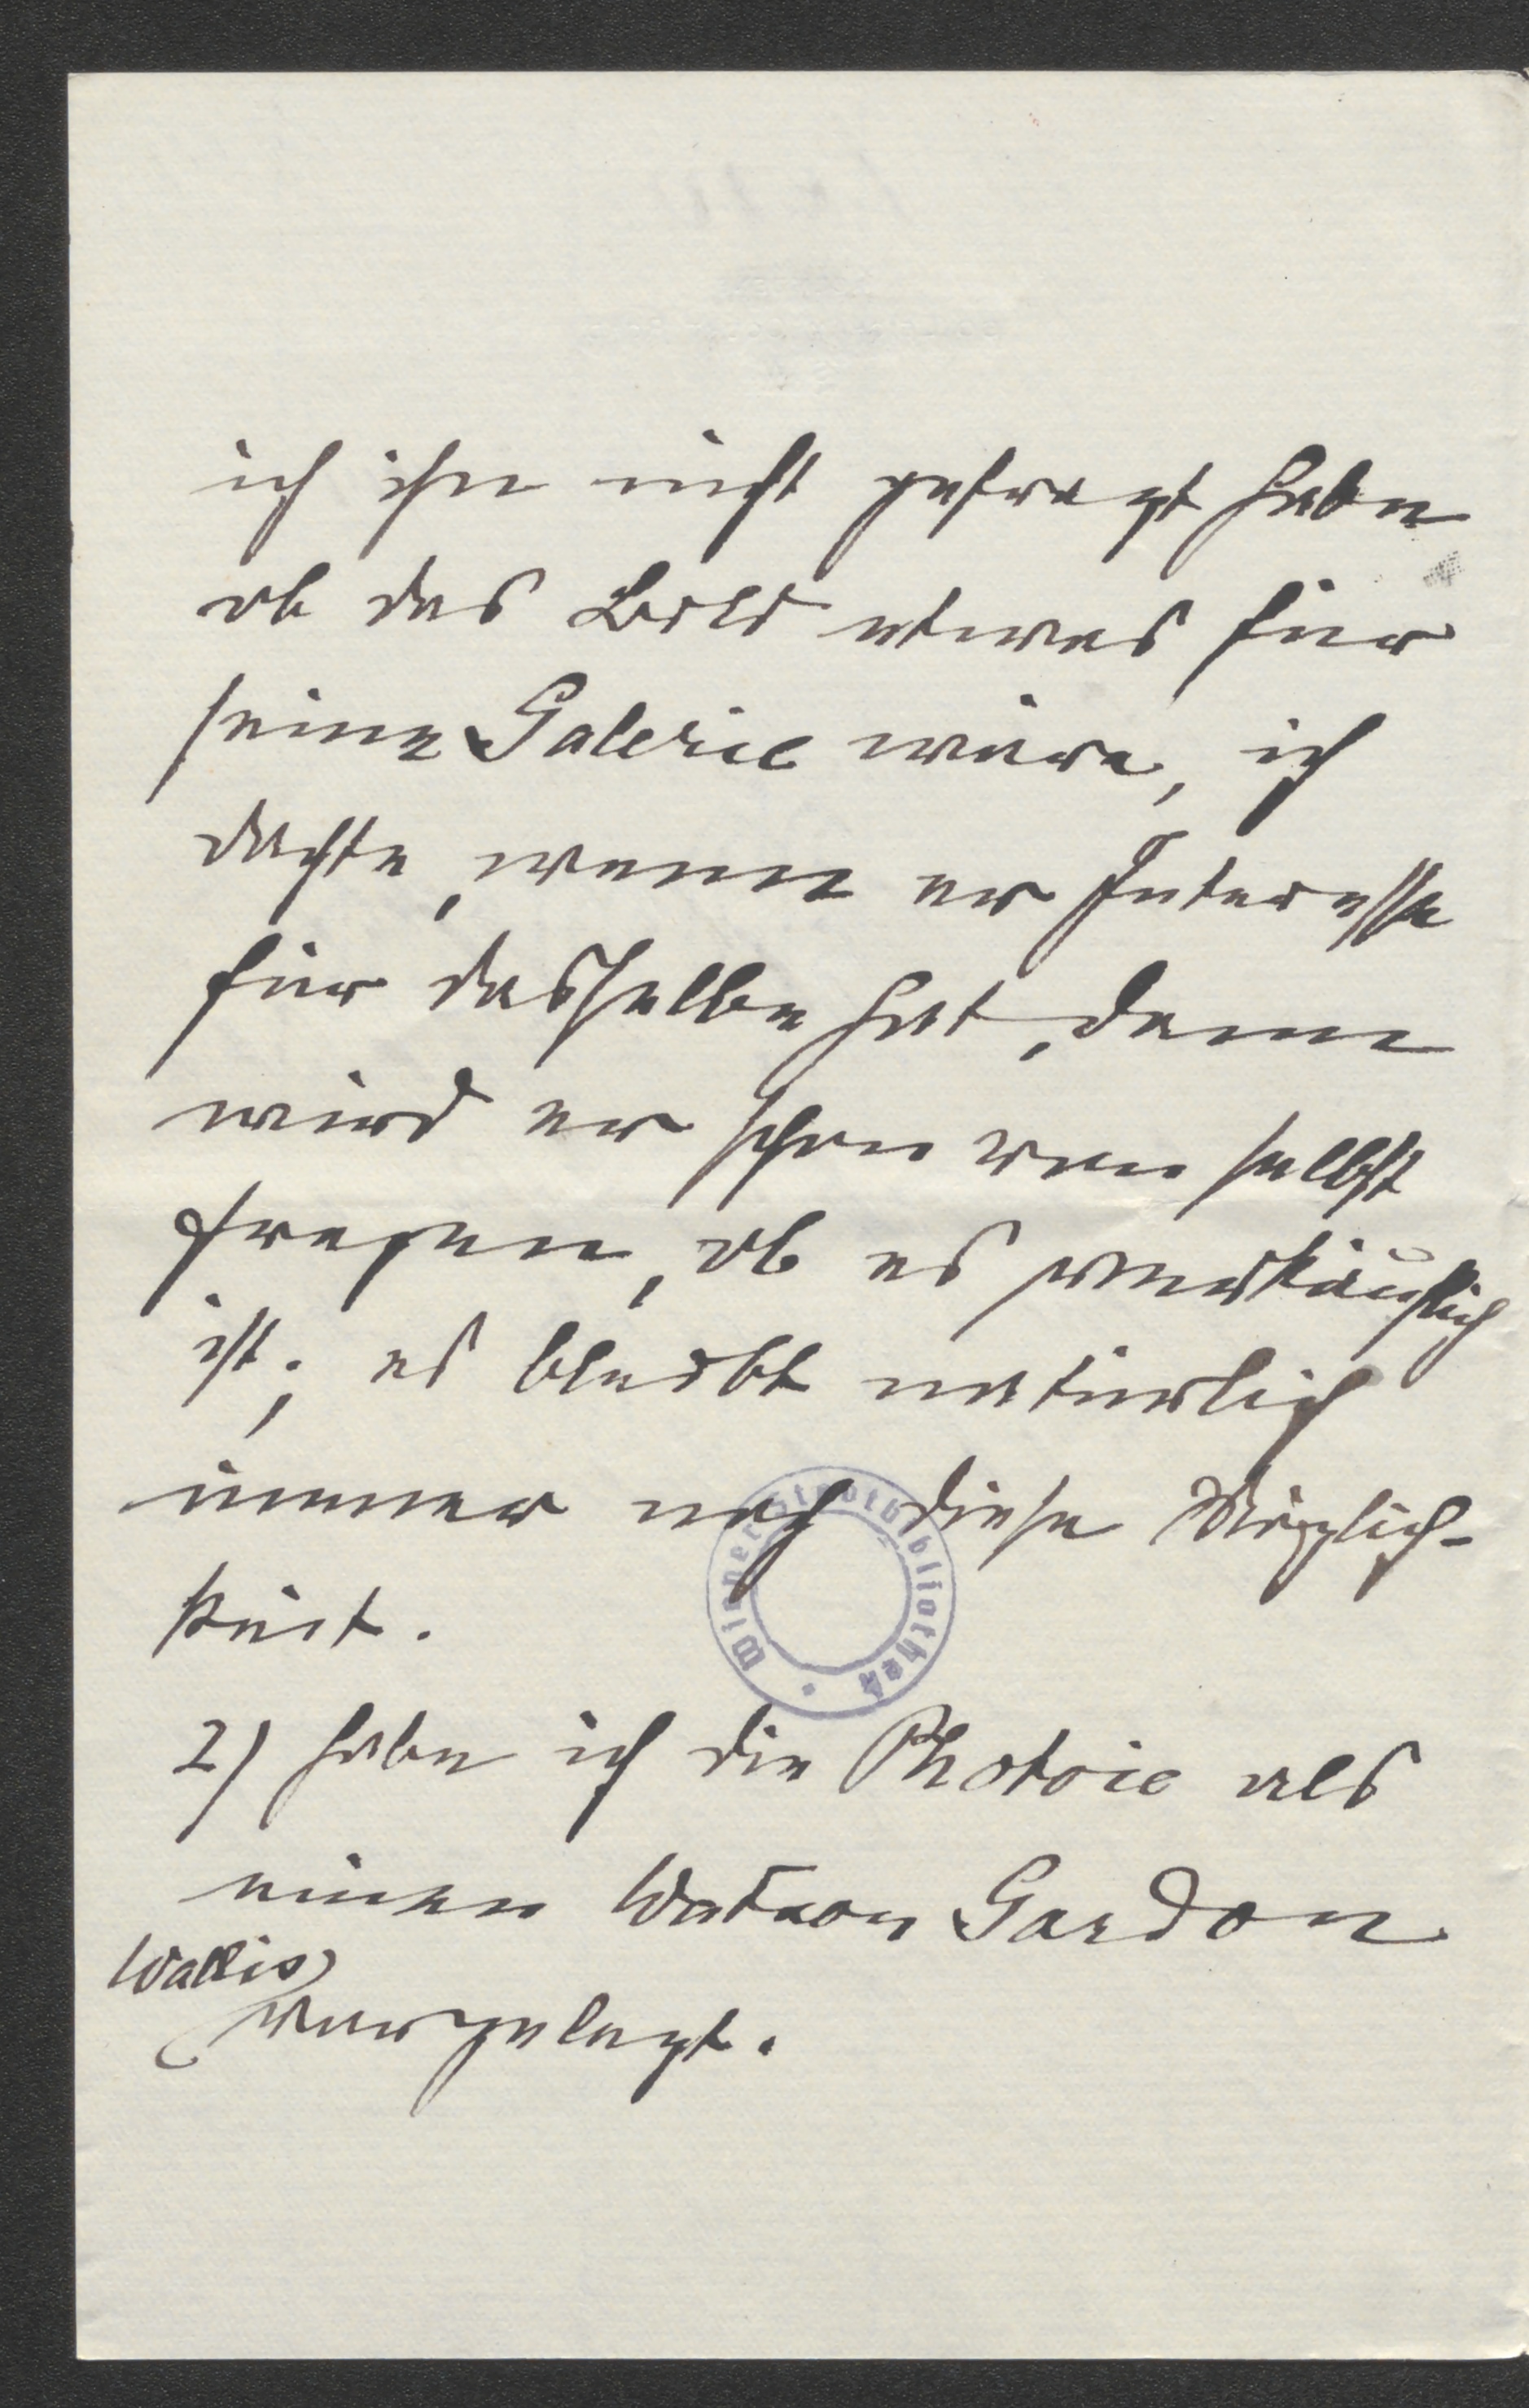 ich ihn nicht gefragt habe
ob das Bild etwas für
seine Galerie wäre, ich
dachte, wenn er Interesse
für dasselbe hat, dann
wird er schon von selbst
fragen, ob es verkäuflich
ist; es bleibt natürlich
immer noch diese Möglich-
keit.
Wiener Stadtbibliothek
2) habe ich die Photoie als
einen Watson Gordon
Wallis
vorgelegt.